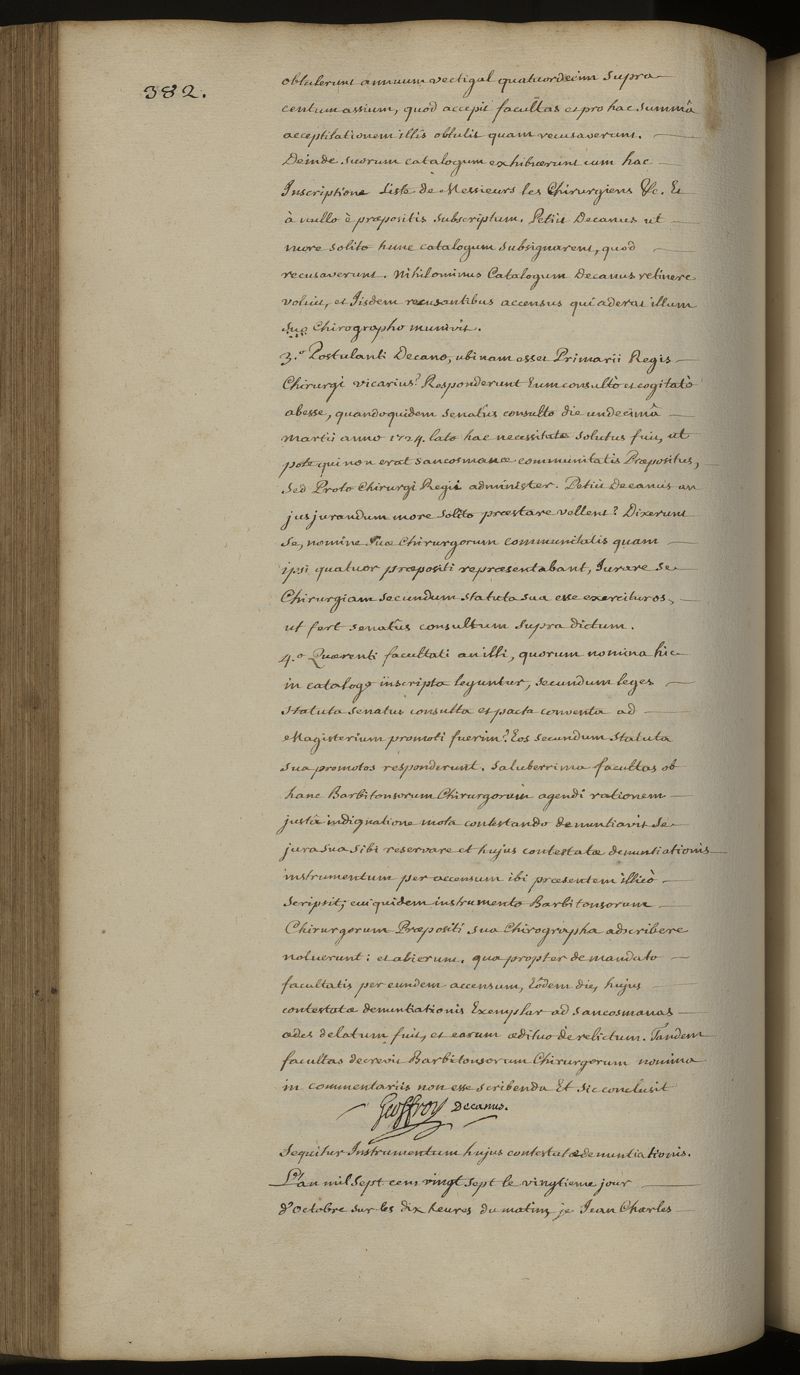 382.
obtulerunt annuum vectigal quatuordecim supra
centum assium, quod accepit facultas et pro hac summâ
acceptilationem illis obtulit quam recusaverunt.
Deinde suorum catalogum exhibuerunt cum hac
Inscriptione Liste de Messieurs les Chirurgiens &c. Et
à nullo è præpositis subscriptum. Petiit Decanus ut
more solito hunc catalogum subsignarent, quod
recusaverunt. Nihilominus Catalogum Decanus retinere
voluit, et Iisdem recusantibus accensus qui aderat illum
suo Chirographo munivit.
3.º Postulanti Decano, ubinam esset Primarii Regis
Chirurgi vicarius? Responderunt Eum consultò et cogitatò
abesse, quandoquidem senatus consulto die undecimâ
martii anno 1724. lato hac necessitate solutus fuit, ut
pote qui non erat sancosmanæ communitatis Præpositus,
sed Proto Chirurgi Regii administer. Petiit Decanus an
jusjurandum more solito præstare vellent? Dixerunt
se, nomine suæ Chirurgorum communitatis quam
ipsi quatuor præpositi repræsentabant, Jurare se
Chirurgiam secundum statuta sua esse exercituros,
ut fert senatus consultum supra dictum.
4.º Quærenti facultati an illi, quorum nomina hic
in catalogo inscripta leguntur, secundum leges
statuta senatus consulta et pacta conventa ad
Magisterium promoti fuerint? Eos secundum statuta
sua promotos responderunt. Saluberrima facultas ob
hanc Barbitonsorum Chirurgorum agendi rationem
justâ indignatione mota contestando denuntiavit se
jura sua sibi reservare et hujus contestatæ denuntiationis
instrumentum per accensum ibi præsentem illicò
scripsit; cui quidem instrumento Barbitonsorum
Chirurgorum Præpositi sua Chirographa adscribere
noluerunt: et abierunt. quapropter de mandato
facultatis per eundem accensum, Eôdem die, hujus
contestatæ denuntiationis Exemplar ad sancosmanas
ædes delatum fuit, et earum ædituo derelictum. Tandem
facultas decrevit Barbitonsorum Chirurgorum nomina
in commentariis non esse scribenda Et sic conclusit
Geoffroy Decanus.
Sequitur Instrumentum hujus contestatæ denuntiationis.
L'an mil sept cens vingt sept le vingtieme jour
d'octobre sur les dix heures du matin, je Jean Charles